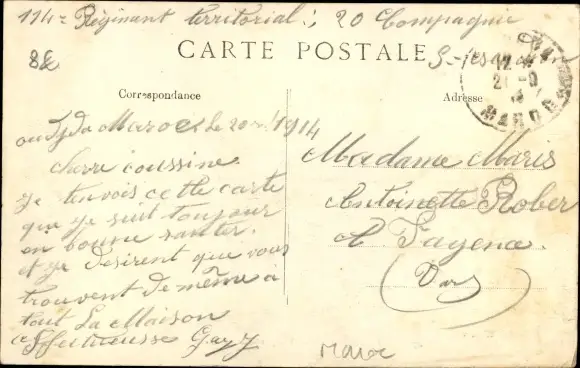 114e Régimant territorial, 20 Compagnie
CARTE POSTALE
8£
Correspondance
Adresse
MAROC
oudJda Maroc le 20 1914
cherre coussine
je tenvois cette carte
que je suit toujour
en bonne santer
et je desirent que vous
trouvent de même a
tout la maison
affectueusse Gayy
Madame Maris
Antoinette Rober
A Fayence
(Var)
Maroc